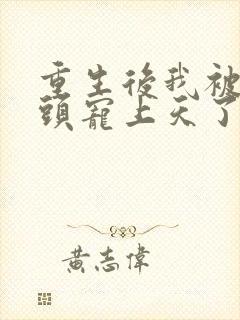 重生後我被
頭寵上天了
黃志偉